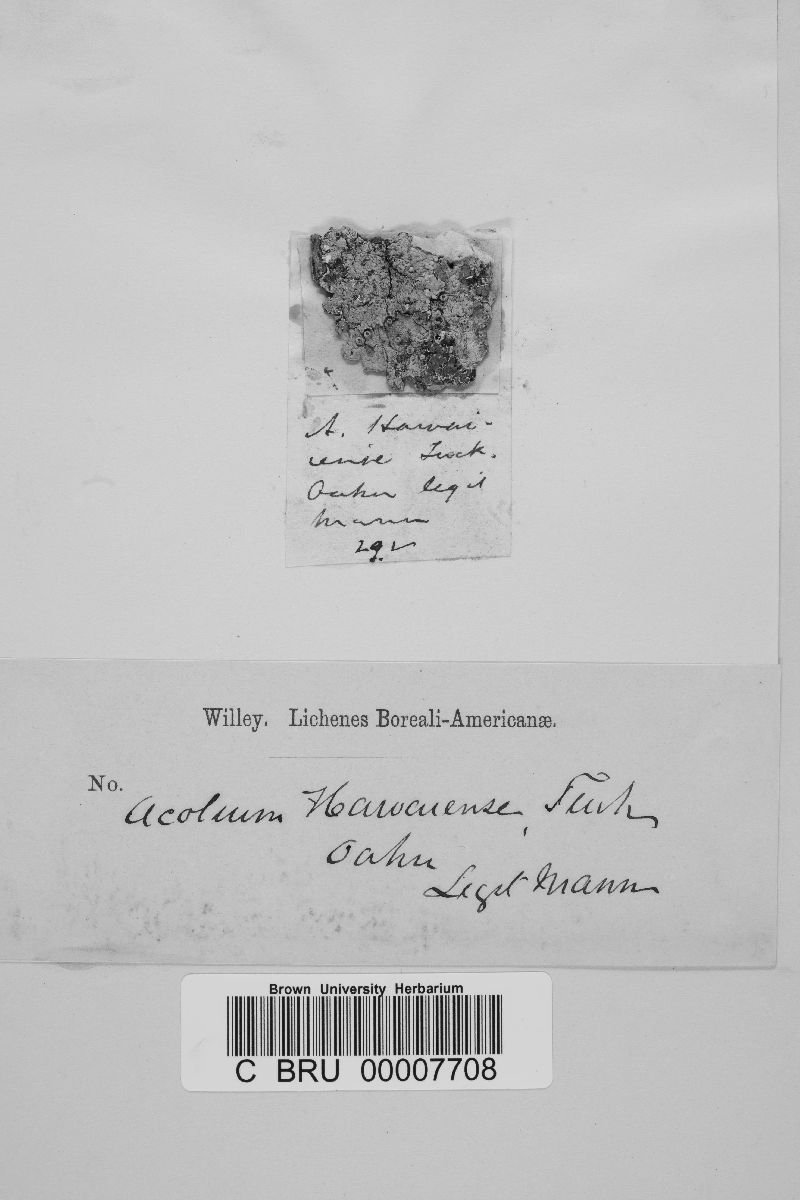 A. Hawai-
iense Tuck.
Oahu legit
Mann
292
Willey. Lichenes Boreali-Americanæ.
No.
Acolium Hawaiense, Tuck
Oahu
Legit Mann
Brown University Herbarium
C BRU 00007708